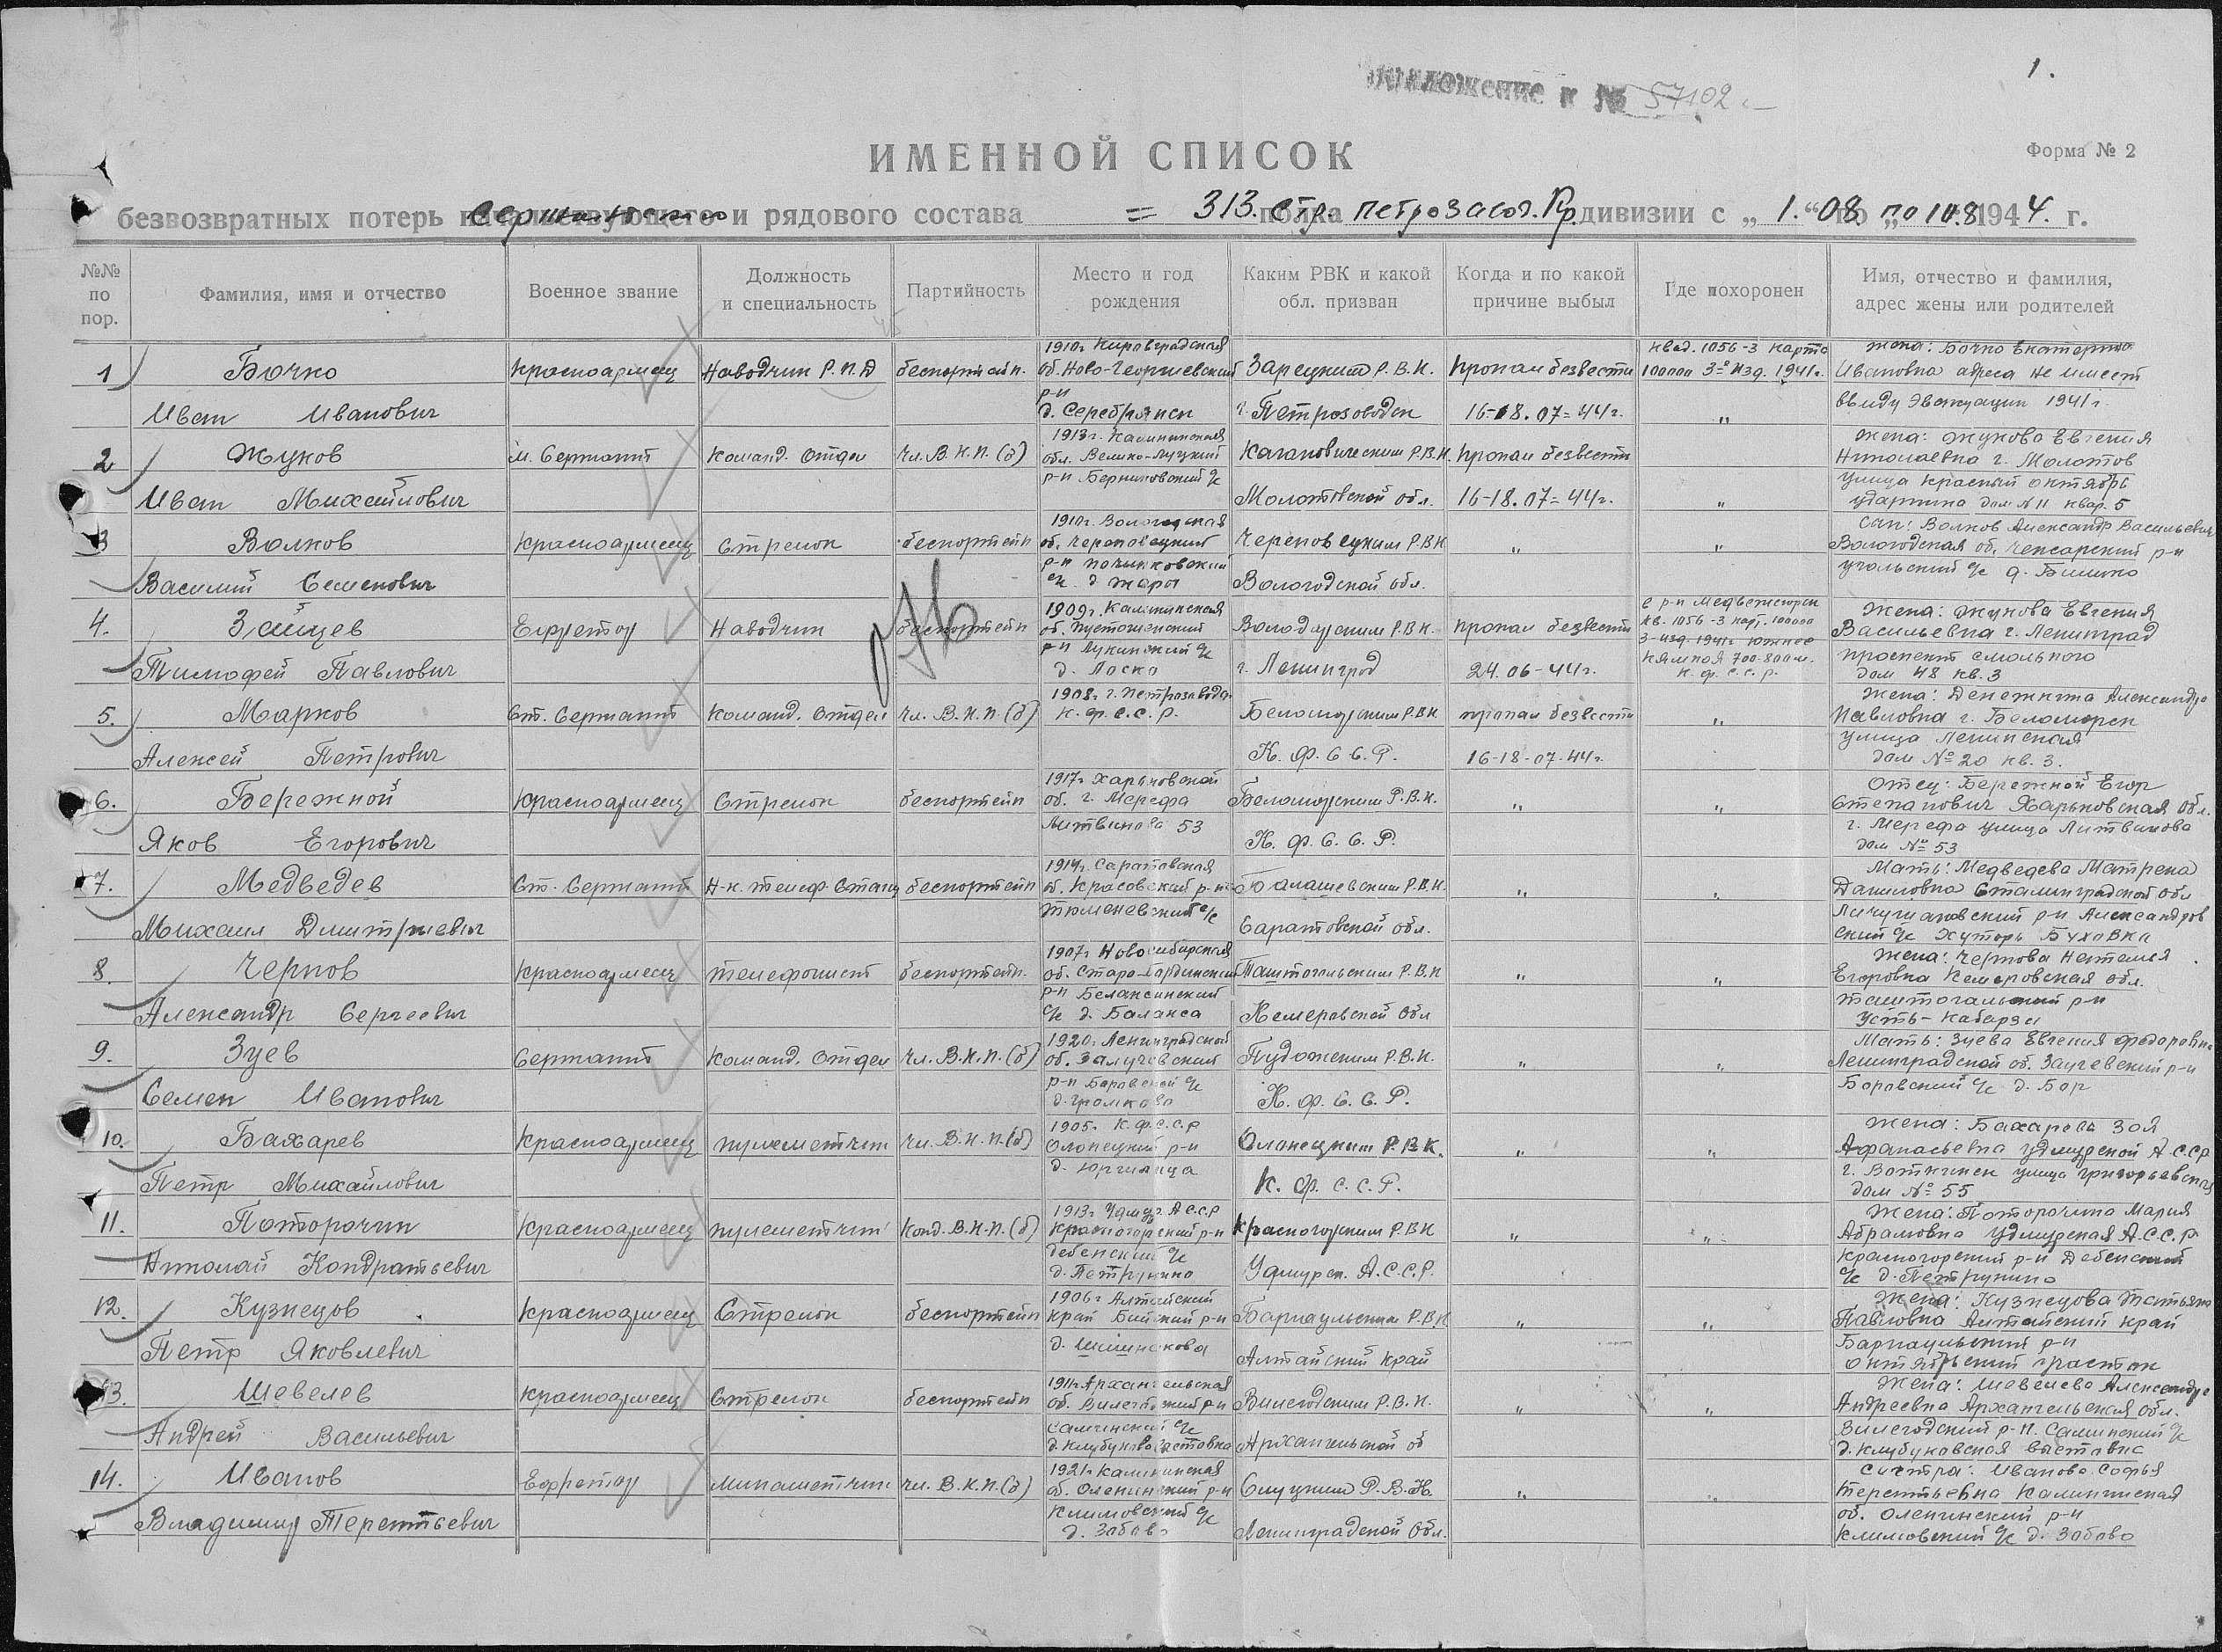 1.
Приложение к № 57102
ИМЕННОЙ СПИСОК
Форма № 2
безвозвратных потерь сержантского и рядового состава = 313. стр. полка Петрозавод. Кр. дивизии с „1.“ 08. по 10.8 1944. г.
№№ по пор.
Фамилия, имя и отчество
Военное звание
Должность и специальность
Партийность
Место и год рождения
Каким РВК и какой обл. призван
Когда и по какой причине выбыл
Где похоронен
Имя, отчество и фамилия, адрес жены или родителей
1 Бочко Иван Иванович
Красноармеец
Наводчик Р.П.Д
беспартийн.
1910г. Кировградская об. Ново-Георгиевский р-н д. Серебрянск
Зарецким Р.В.К. г. Петрозаводск
пропал безвести 16-18.07-44г.
квад. 1056-3 карта 100000 3-е изд. 1941г.
"
жена: Бочко Екатерина Ивановна адреса не имеет ввиду эвакуации 1941г.
2 Жуков Иван Михайлович
м. Сержант
Команд. Отдел
Чл. В.К.П.(б)
1913г. Калининская обл. Велико-Луцкий р-н с/с
Кагановическим Р.В.К. Молотовской обл.
пропал безвести 16-18.07-44г.
"
жена: Жукова Евгения Николаевна г. Молотов улица красный октябрь ударника дом № 11 квар. 5
3 Волков Василий Семенович
Красноармеец
Стрелок
беспартейн
1910г. Вологодская об. Череповецкий р-н с/с д. Жары
Череповецким Р.В.К Вологодской обл.
"
"
Сын: Волков Александр Васильевич Вологодская об. р-н с/с д.
4. Зайцев Тимофей Павлович
Ефрейтор
Наводчик
беспартейн
1909г. Калининская об. Пустошенский р-н Лукинский с/с д. Лоско
Володарским Р.В.К. г. Ленинград
пропал безвести 24.06-44г.
с р-н Медвежегорск кв. 1056-3 кар. 100000 3-изд. 1941г. южнее 700-800 м. К.Ф.С.С.Р.
Жена: Жукова Евгения Васильевна г. Ленинград проспект смольного дом 48 кв. 3
5. Марков Алексей Петрович
Ст. Сержант
Команд. Отдел
Чл. В.К.П.(б)
1908г. г. Петрозаводск К.Ф.С.С.Р.
Беломорским Р.В.К К.Ф.С.С.Р.
пропал безвести 16-18-07-44г.
"
Жена: Денежкина Александра Павловна г. Беломорск улица Ленинская дом № 20 кв. 3.
6. Бережной Яков Егорович
Красноармеец
Стрелок
беспартейн
1917г. Харьковской об. г. Мерефа Литвинова 53
Беломорским Р.В.К. К.Ф.С.С.Р.
"
"
Отец: Бережной Егор Степанович Харьковская обл. г. Мерефа улица Литвинова дом № 53
7. Медведев Михаил Дмитриевич
Ст. Сержант
Н-к. телеф. Станц
беспартейн
1914г. Саратовская об. р-н Тюменевский с/с
Балашевским Р.В.К. Саратовской обл.
"
"
Мать: Медведева Матрена Даниловна Сталинградской обл р-н Александровский с/с Хуторь Буховка
8. Чернов Александр Сергеевич
Красноармеец
телефонист
беспартейн.
1907г. Новосибирская об. Старо-Бардинский р-н с/с д. Баланса
Таштогольским Р.В.К Кемеровской Обл
"
"
Жена: Чернова Наталья Егоровна Кемеровская обл. таштогальский р-н Усть-Кабарза
9. Зуев Семен Иванович
Сержант
Команд. Отдел
Чл. В.К.П.(б)
1920г. Ленинградской об. Залучевский р-н Боровской с/с д. Громково
Пудожским Р.В.К. К.Ф.С.С.Р.
"
"
Мать: Зуева Евгения Федоровна Ленинградской об. р-н Боровский с/с д. Бор
10. Бахарев Петр Михайлович
Красноармеец
пулеметчик
Чл. В.К.П.(б)
1905г. К.Ф.С.С.Р Олонецкий р-н д.
Олонецким Р.В.К. К.Ф.С.С.Р.
"
"
Жена: Бахарева Зоя Афанасьевна Удмурской А.С.С.Р г. Воткинск улица Григорьевская дом № 55
11. Поторочин Николай Кондратьевич
Красноармеец
пулеметчик
Конд. В.К.П.(б)
1913г. Удмур. АССР Красногорский р-н Дебенский с/с д. Петрунино
Красногорским Р.В.К Удмурск. А.С.С.Р.
"
"
Жена: Поторочина Мария Абрамовна Удмурская А.С.С.Р Красногорский р-н Дебенский с/с д. Петрунино
12. Кузнецов Петр Яковлевич
Красноармеец
Стрелок
беспартейн
1906г Алтайский край Бийский р-н д. Шишнакова
Барнаульским Р.В.К Алтайский край
"
"
Жена: Кузнецова Татьяна Павловна Алтайский край Барнаульский р-н октябрьский участок
13. Шевелев Андрей Васильевич
Красноармеец
Стрелок
беспартейн
1911г. Архангельская об. Вилегодский р-н с/с д.
Вилегодским Р.В.К. Архангельской об
"
"
Жена: Шевелева Александра Андреевна Архангельская обл. Вилегодский р-н. с/с д. Клубуковская выставка
14. Иванов Владимир Терентьевич
Ефрейтор
Минаметчик
чл. В.К.П.(б)
1921г Калининская об. Оленинский р-н Климовский с/с д. Забово
Слуцким Р.В.К. Ленинградской Обл.
"
"
Систра: Иванова Софья Терентьевна Калининская об. Оленинский р-н Климовский с/с д. Забово